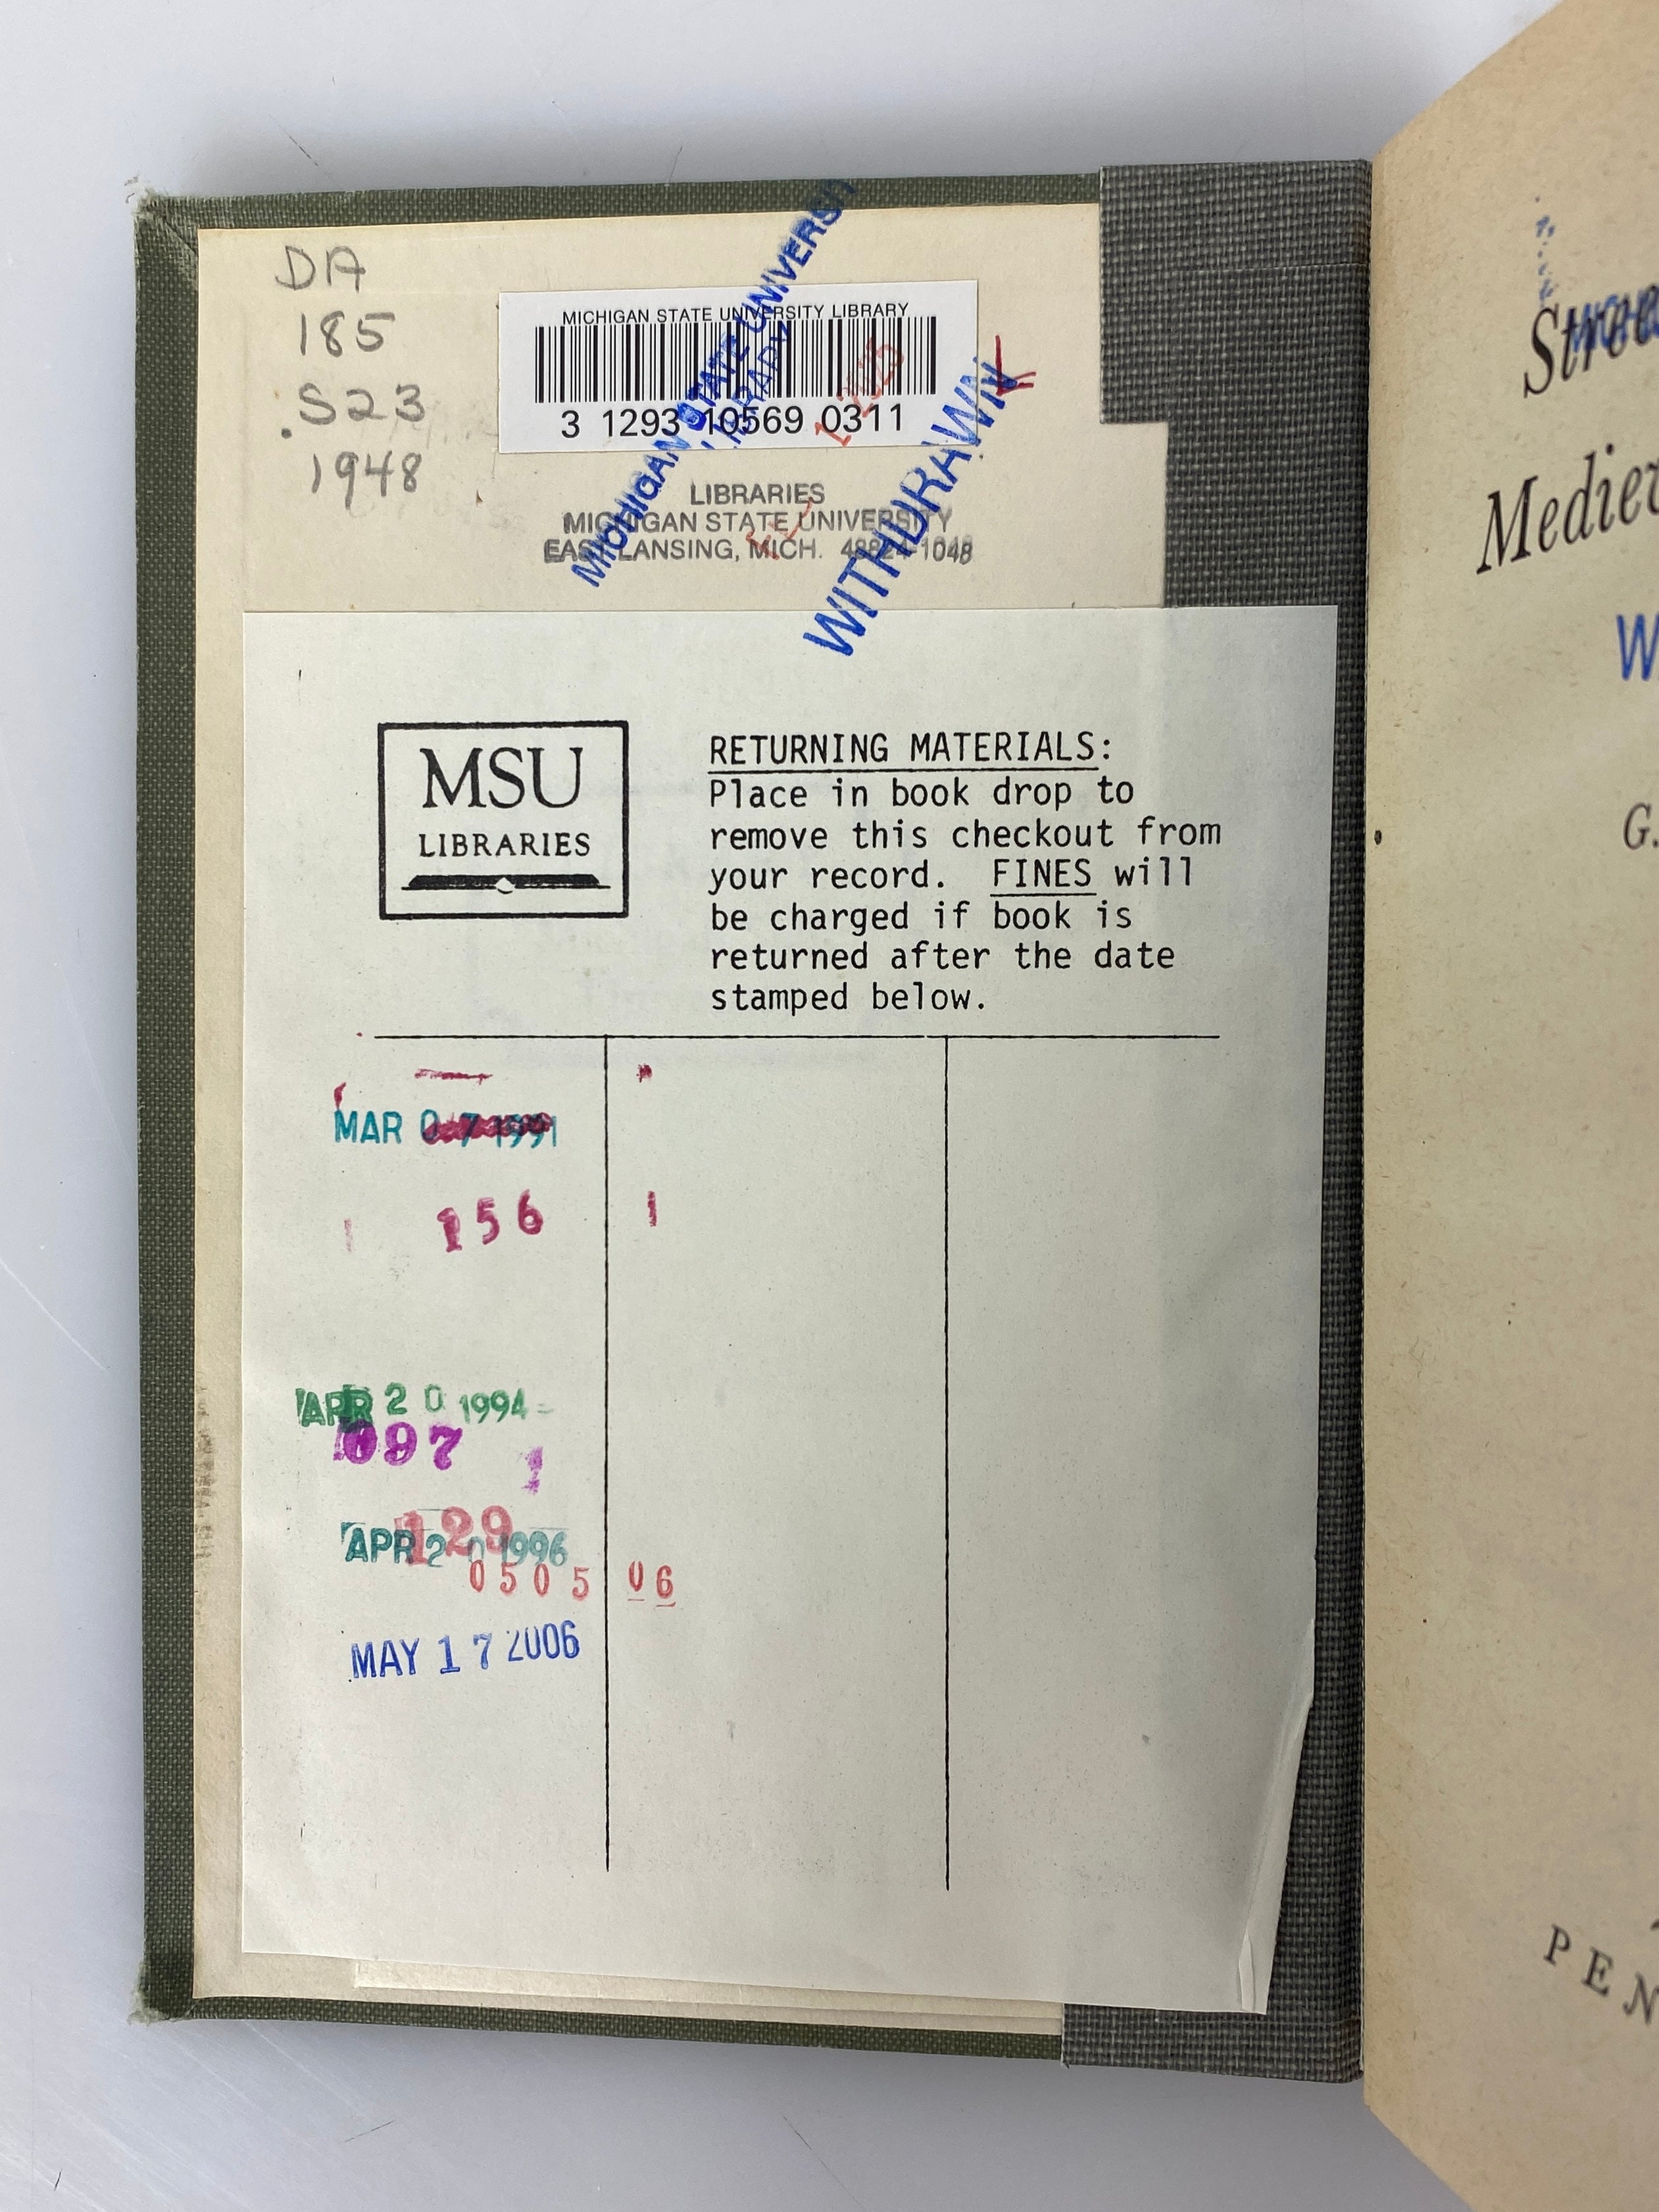 DA
185
.S23
1948
MICHIGAN STATE UNIVERSITY LIBRARY
3 1293 10569 0311
MICHIGAN STATE UNIVERSITY
LIBRARY
WITHDRAWN
LIBRARIES
MICHIGAN STATE UNIVERSITY
EAST LANSING, MICH. 48824-1048
MSU
LIBRARIES
RETURNING MATERIALS:
Place in book drop to
remove this checkout from
your record. FINES will
be charged if book is
returned after the date
stamped below.
MAR 07 1991
156
1
APR 20 1994
097
1
129
APR 20 1996
0505 06
MAY 17 2006
Medie
W
G.
PEN